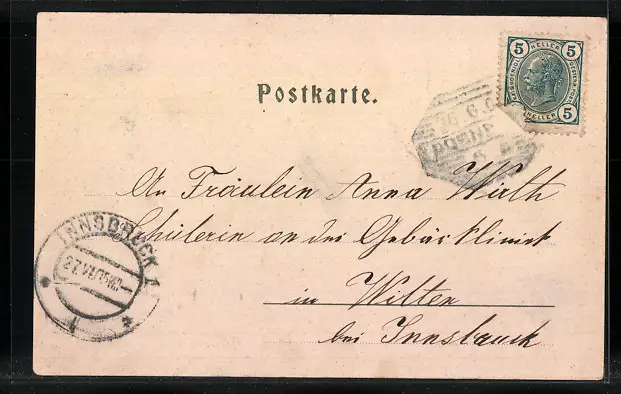 5 HELLER 5
HELLER 5
Postkarte.
26 6 0
An Fräulein Anna Wirth
Schülerin an der Gebärklinik
in Wilten
bei Innsbruck
INNSBRUCK 1
27.VI.05